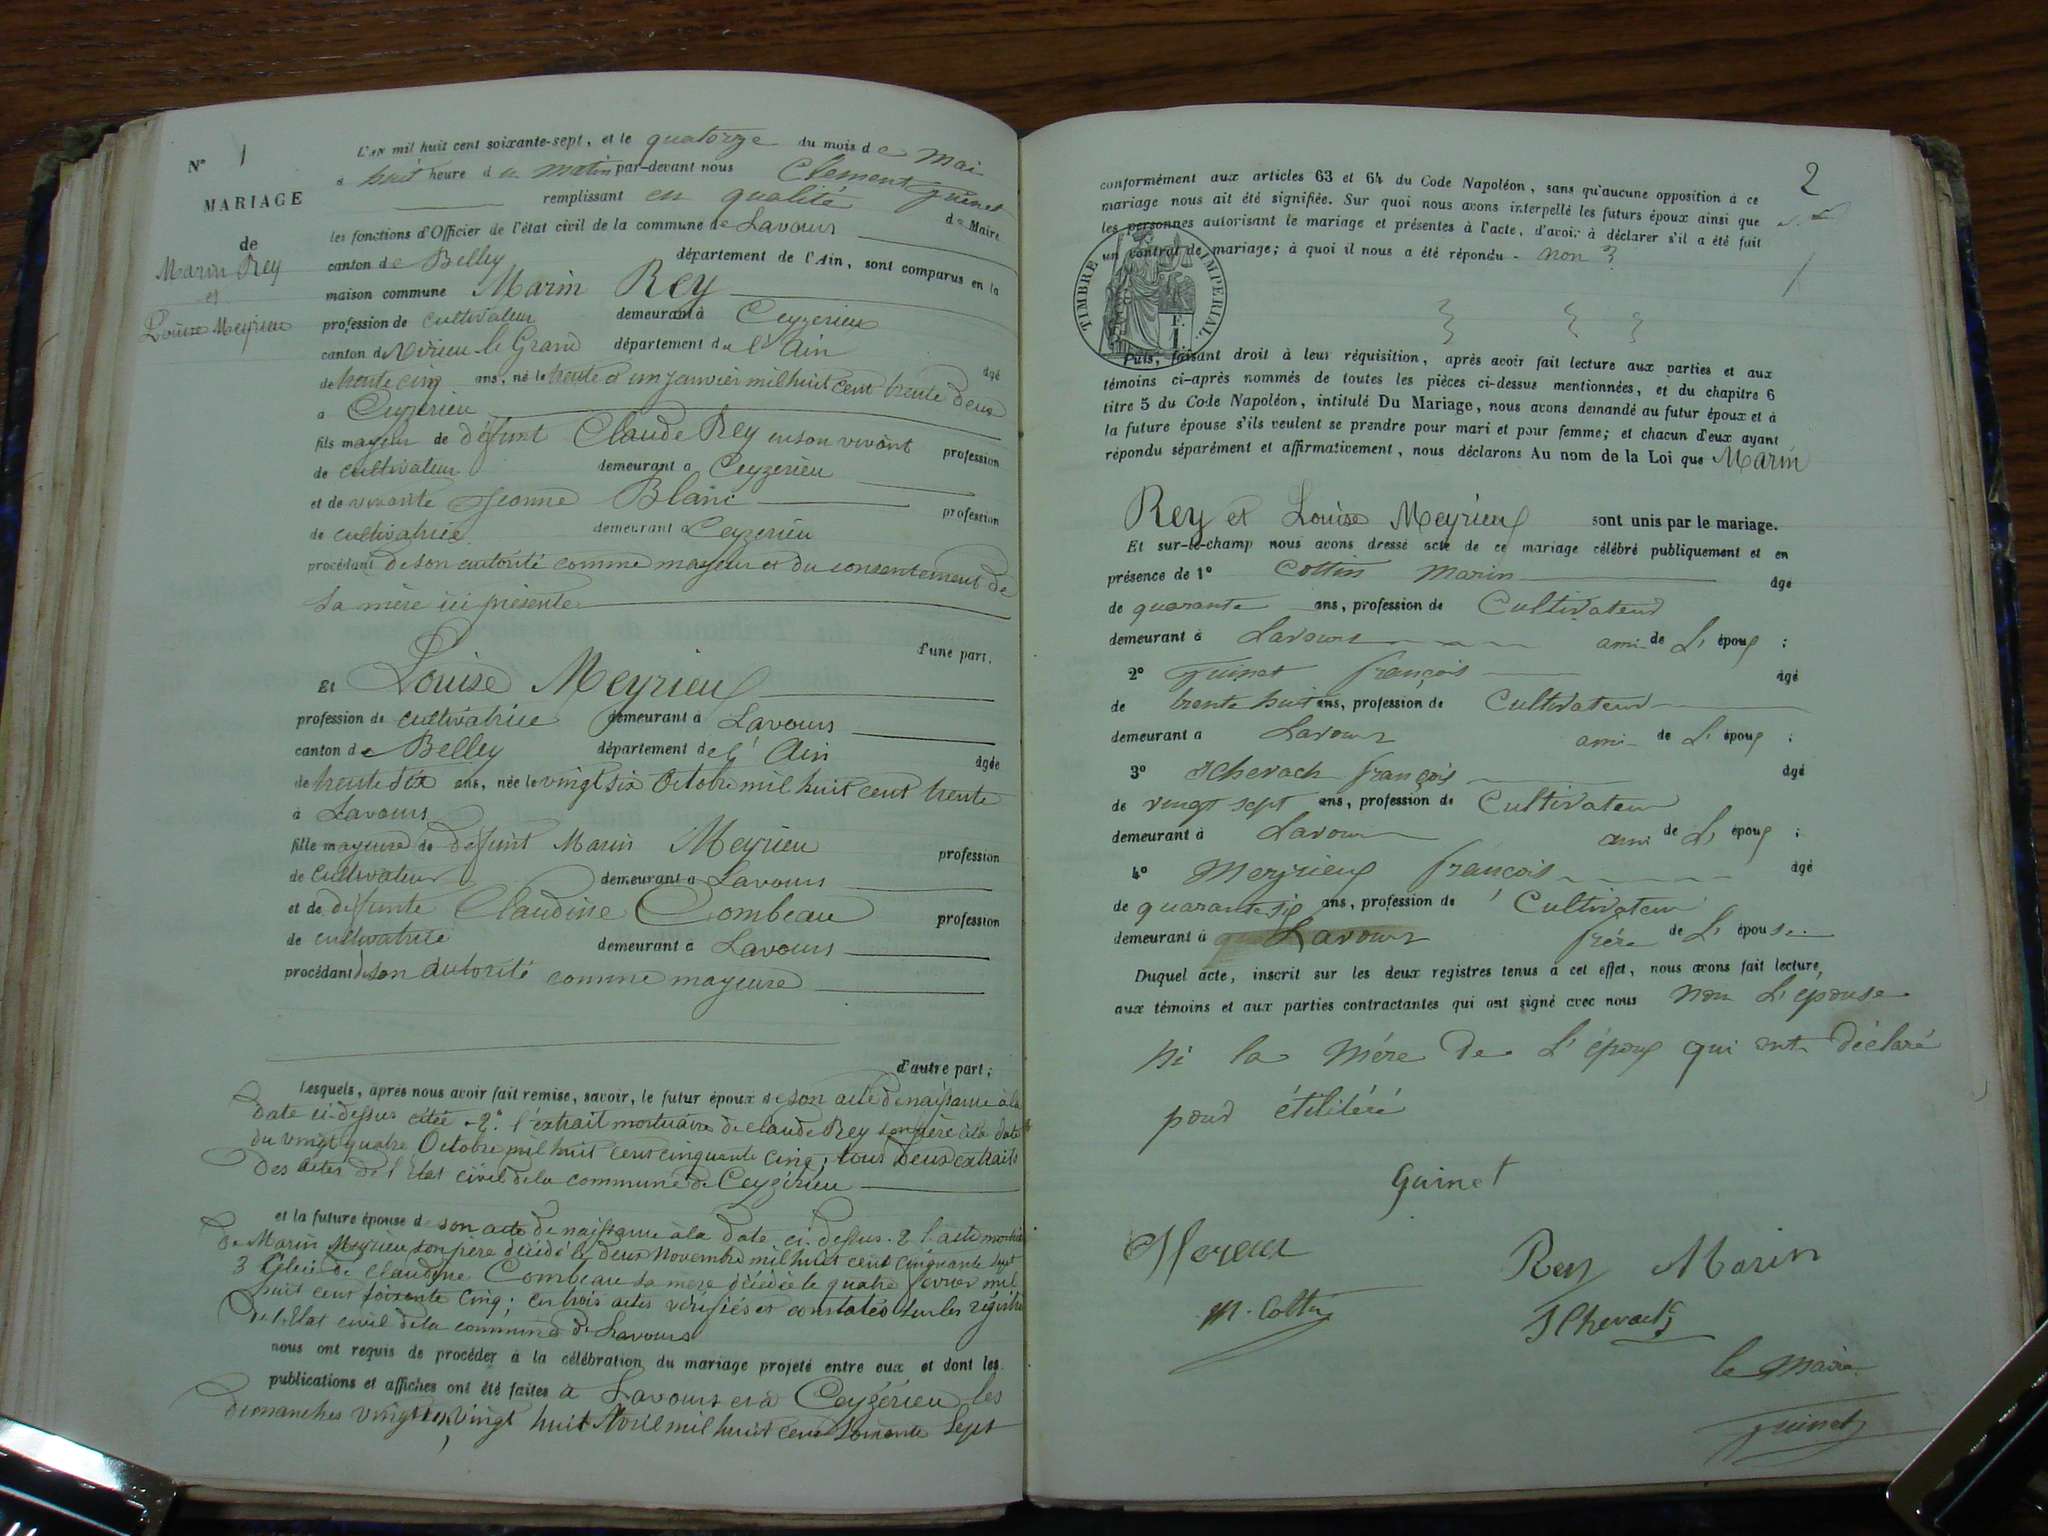 N° 1
MARIAGE
de
Marin Rey
et
Louise Meyrieu
L'AN mil huit cent soixante-sept, et le quatorze du mois de Mai
à huit heure du matin par-devant nous Clement Guinet
remplissant en qualité de Maire
les fonctions d'Officier de l'état civil de la commune de Lavours
canton de Belley département de l'Ain, sont comparus en la
maison commune Marin Rey
profession de cultivateur demeurant à Ceyzerieu
canton de Virieu-le Grand département de l'Ain âgé
de trente cinq ans, né le trente et un janvier mil huit cent trente deux
à Ceyzerieu
fils mayeur de défunt Claude Rey en son vivant profession
de cultivateur demeurant à Ceyzerieu
et de vivante Jeanne Blanc profession
de cultivatrice demeurant à Ceyzerieu
procédant de son autorité comme mayeur et du consentement de
sa mère ici présente
d'une part.
Et Louise Meyrieux
profession de cultivatrice demeurant à Lavours
canton de Belley département de l'Ain âgée
de trente six ans, née le vingt six Octobre mil huit cent trente
à Lavours
fille mayeure de défunt Marin Meyrieu profession
de cultivateur demeurant à Lavours
et de défunte Claudine Combeau profession
de cultivatrice demeurant à Lavours
procédant de son autorité comme mayeure
d'autre part;
Lesquels, après nous avoir fait remise, savoir, le futur époux de son acte de naissance à la
date ci-dessus citée 2° l'extrait mortuaire de Claude Rey son père à la date
du vingt quatre Octobre mil huit cent cinquante cinq; tous deux extraits
des actes de l'Etat civil de la commune de Ceyzérieu
et la future épouse de son acte de naissance à la date ci-dessus. 2 l'acte
de Marin Meyrieu son père décédé le deux Novembre mil huit cent cinquante sept
3 Celui de Claudine Combeau sa mère décédée le quatre février mil
huit cent soixante cinq; ces trois actes vérifiés et constatés sur les régistres
de l'Etat civil de la commune de Lavours
nous ont requis de procéder à la célébration du mariage projeté entre eux et dont les
publications et affiches ont été faites à Lavours et à Ceyzérieu les
dimanches vingt un, vingt huit Avril mil huit cent soixante sept
2
conformément aux articles 63 et 64 du Code Napoléon, sans qu'aucune opposition à ce
mariage nous ait été signifiée. Sur quoi nous avons interpellé les futurs époux ainsi que
les personnes autorisant le mariage et présentes à l'acte, d'avoir à déclarer s'il a été fait
un contrat de mariage; à quoi il nous a été répondu - non
TIMBRE IMPERIAL
F.
1.
Puis, faisant droit à leur réquisition, après avoir fait lecture aux parties et aux
témoins ci-après nommés de toutes les pièces ci-dessus mentionnées, et du chapitre 6
titre 5 du Code Napoléon, intitulé Du Mariage, nous avons demandé au futur époux et à
la future épouse s'ils veulent se prendre pour mari et pour femme; et chacun d'eux ayant
répondu séparément et affirmativement, nous déclarons Au nom de la Loi que Marin
Rey et Louise Meyrieux sont unis par le mariage.
Et sur-le-champ nous avons dressé acte de ce mariage célébré publiquement et en
présence de 1° Cottin Marin âgé
de quarante ans, profession de Cultivateur
demeurant à Lavours ami de L'époux ;
2° Guinet françois âgé
de trente huit ans, profession de Cultivateur
demeurant à Lavours ami de L'époux ;
3° Jchevach françois âgé
de vingt sept ans, profession de Cultivateur
demeurant à Lavours ami de L'époux ;
4° Meyrieux françois âgé
de quarante six ans, profession de Cultivateur
demeurant à Lavours frère de L'épouse.
Duquel acte, inscrit sur les deux registres tenus à cet effet, nous avons fait lecture
aux témoins et aux parties contractantes qui ont signé avec nous non L'épouse
ni la mère de L'époux qui ont déclaré
pour étilitéré
Guinet
Rey Marin
M. Cottin
JChevach
le Maire
Guinet